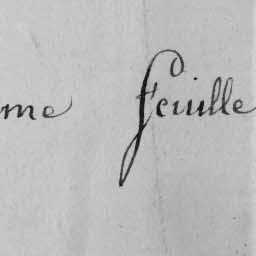 me feuille